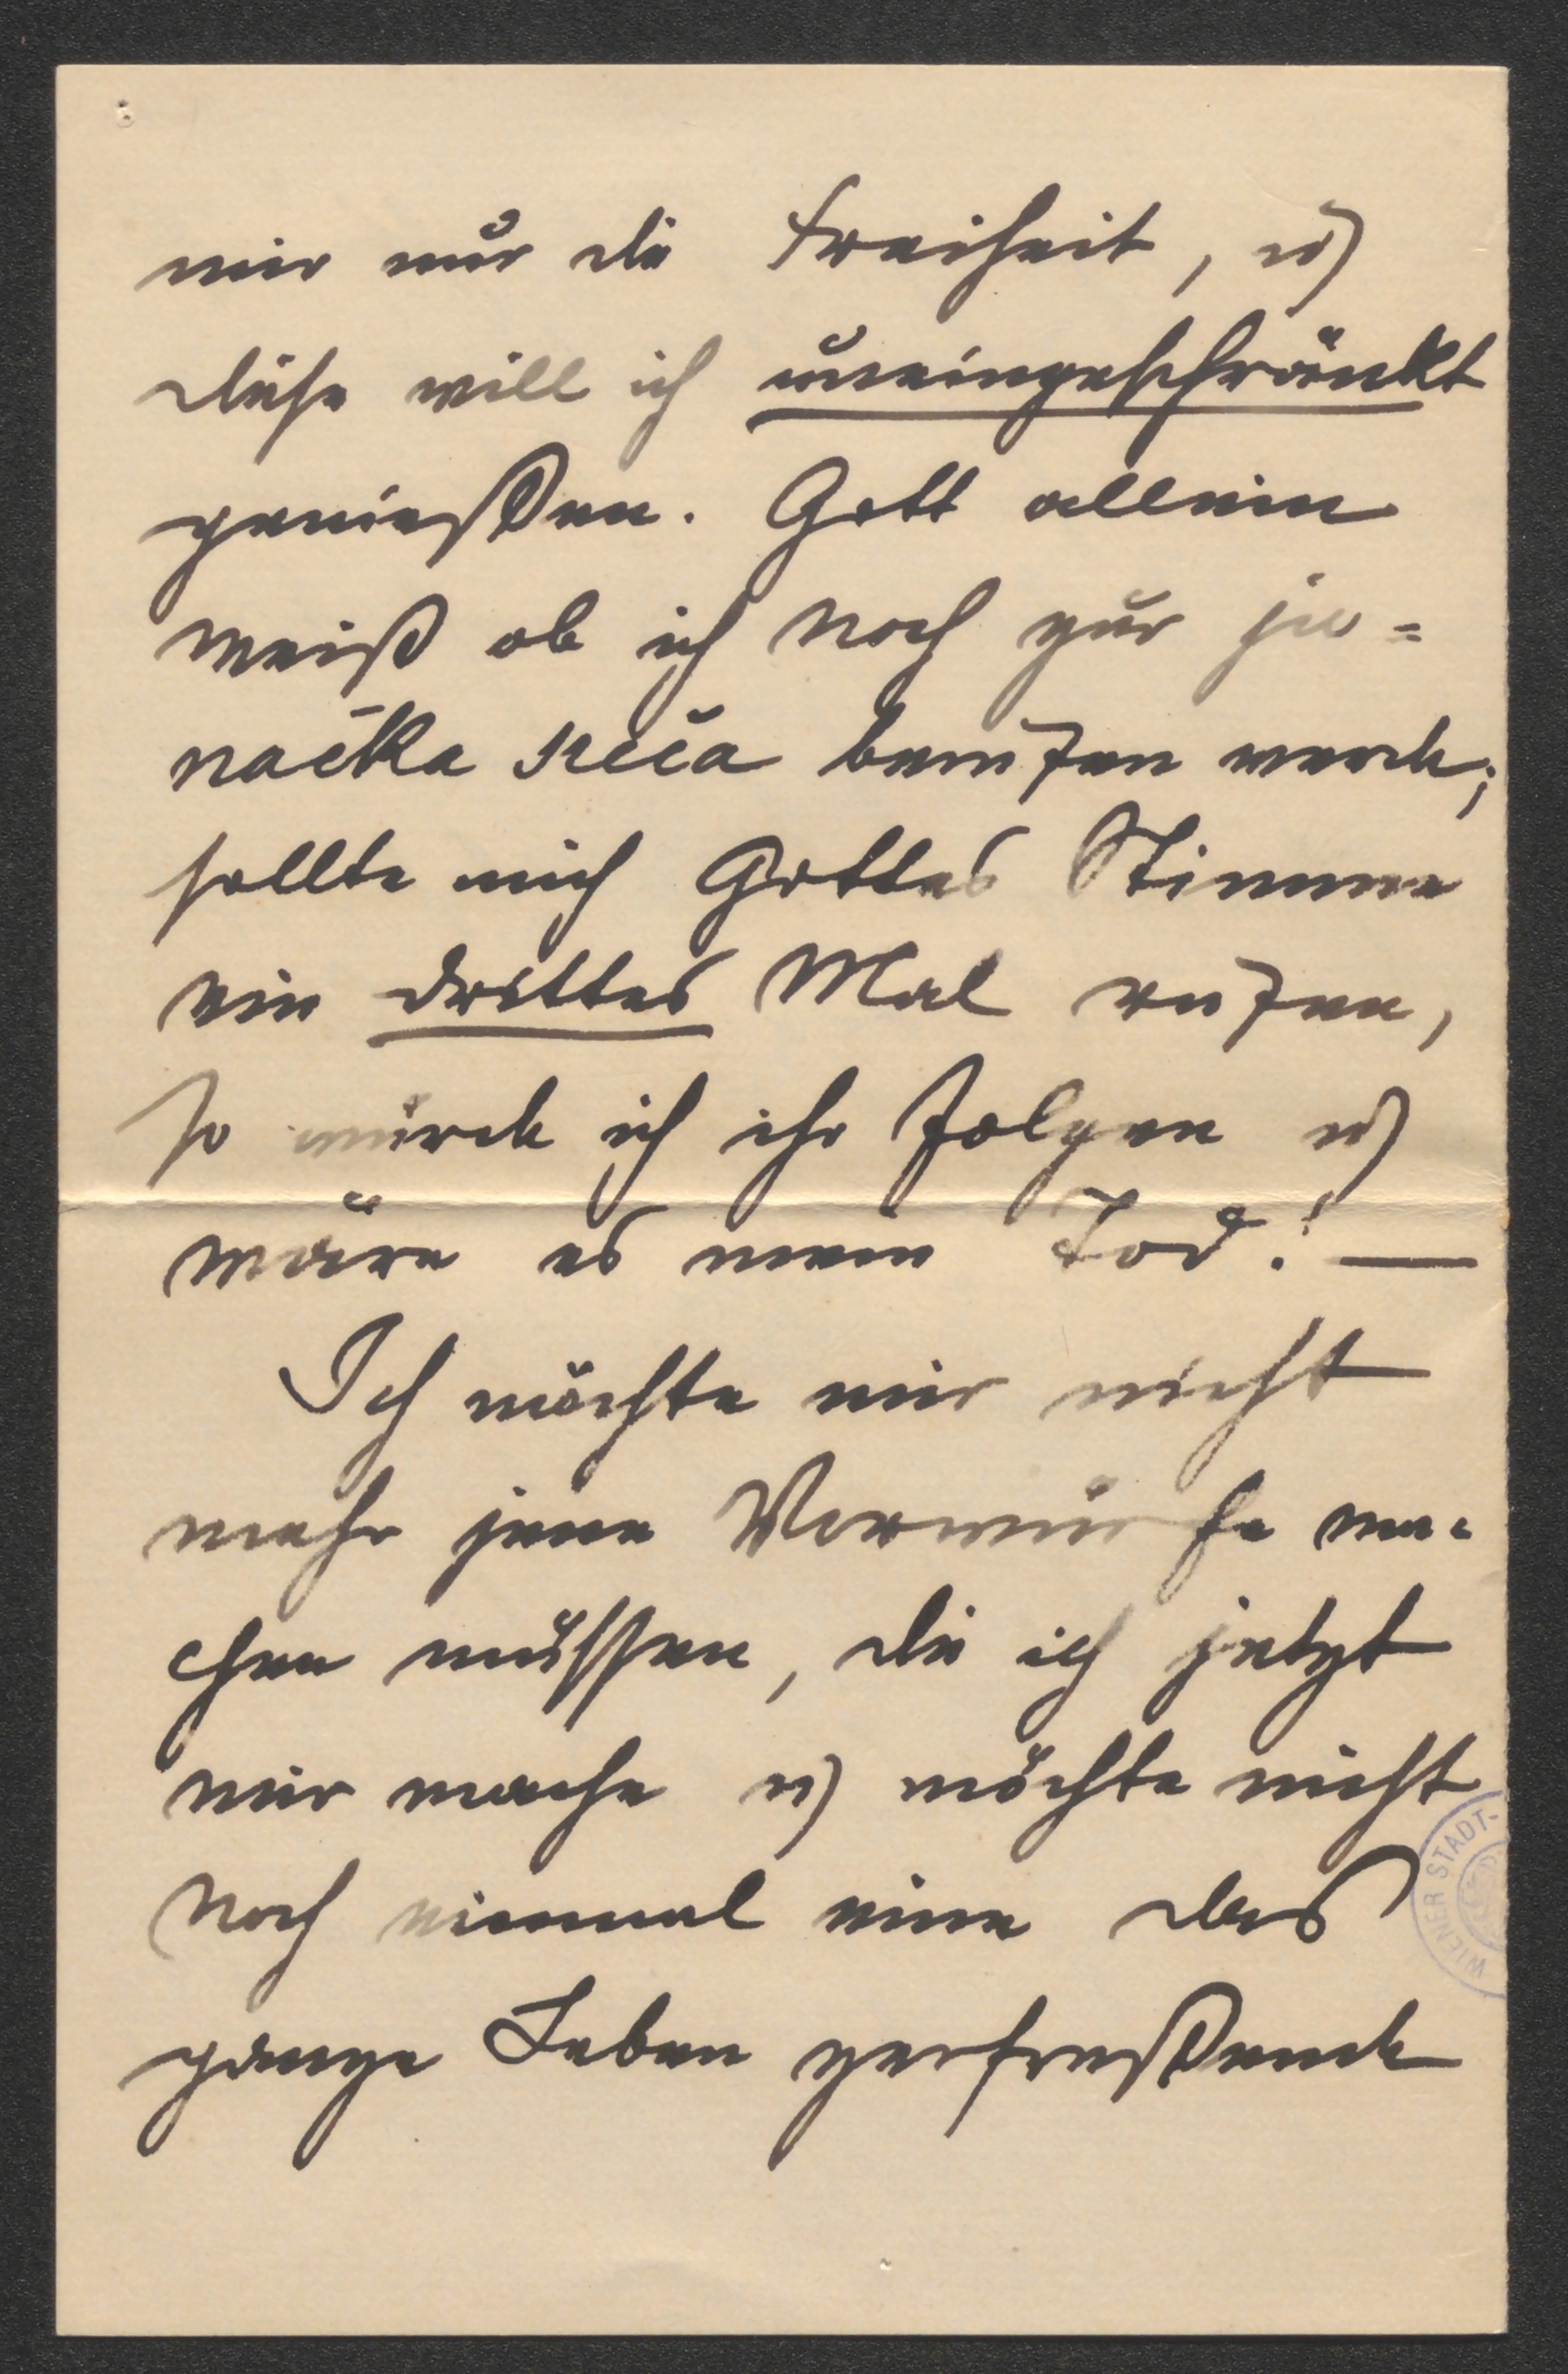 mir nur die Freiheit, u
diese will ich uneingeschränkt
genießen. Gott allein
weiß ob ich noch zur ju=
načka sreča berufen werde;
sollte mich Gottes Stimme
ein drittes Mal rufen,
so würde ich ihr folgen u
wäre es mein Tod! —
Ich möchte mir nicht
mehr jene Vorwürfe ma=
chen müssen, die ich jetzt
mir mache u möchte nicht
noch einmal eine das
ganze Leben zerfressende
WIENER STADT-